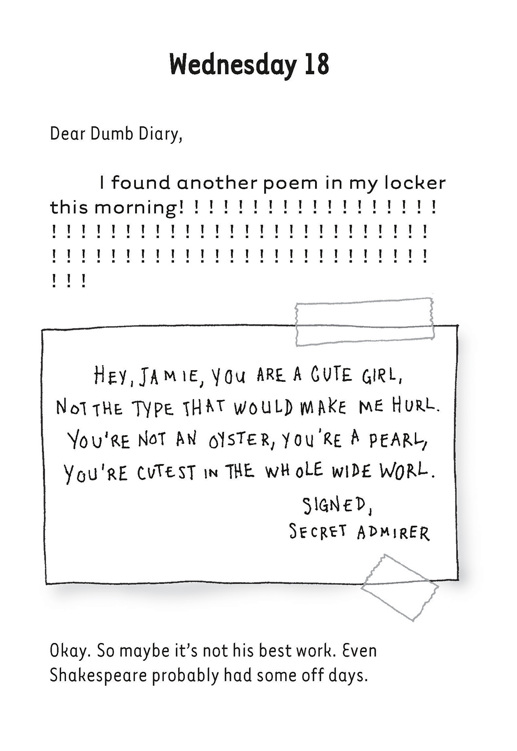 Wednesday 18
Dear Dumb Diary,
I found another poem in my locker
this morning! ! ! ! ! ! ! ! ! ! ! ! ! ! ! ! ! !
! ! ! ! ! ! ! ! ! ! ! ! ! ! ! ! ! ! ! ! ! ! ! ! ! !
! ! ! ! ! ! ! ! ! ! ! ! ! ! ! ! ! ! ! ! ! ! ! ! ! !
! ! !
HEY, JAMIE, YOU ARE A CUTE GIRL,
NOT THE TYPE THAT WOULD MAKE ME HURL.
YOU'RE NOT AN OYSTER, YOU'RE A PEARL,
YOU'RE CUTEST IN THE WHOLE WIDE WORL.
SIGNED,
SECRET ADMIRER
Okay. So maybe it's not his best work. Even
Shakespeare probably had some off days.